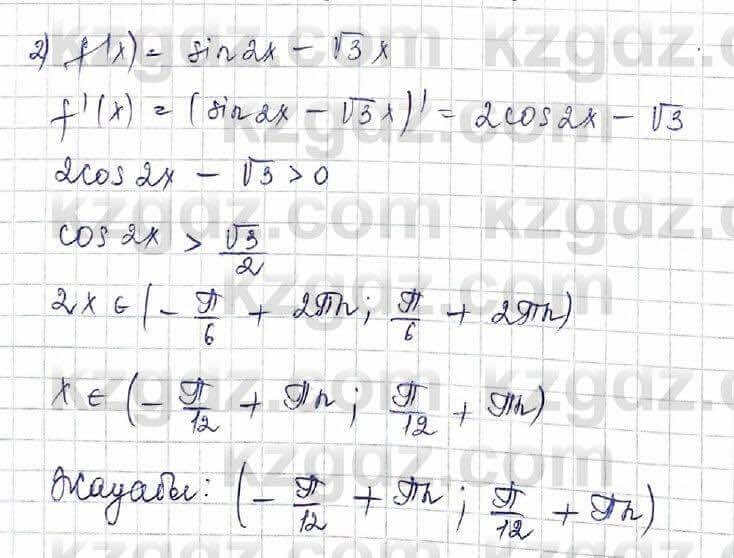 2) f(x) = sin2x − √3x
f'(x) = (sin2x − √3x)' = 2cos2x − √3
2cos2x − √3 > 0
cos2x > √3/2
2x ∈ (− π/6 + 2πn; π/6 + 2πn)
x ∈ (− π/12 + πn; π/12 + πn)
Жауабы: (− π/12 + πn; π/12 + πn)
kzgdz.com